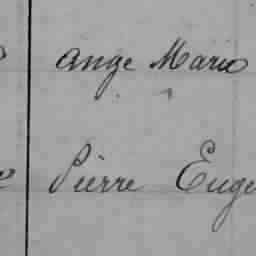 Ange Marie
Pierre Euge